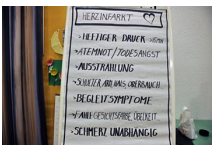 HERZINFARKT
- HEFTIGER DRUCK >5MIN
- ATEMNOT/TODESANGST
- AUSSTRAHLUNG
- SCHULTER ARM HALS OBERBAUCH
- BEGLEITSYMPTOME
- FAHLE GESICHTSFARBE ÜBELKEIT
- SCHMERZ UNABHÄNGIG